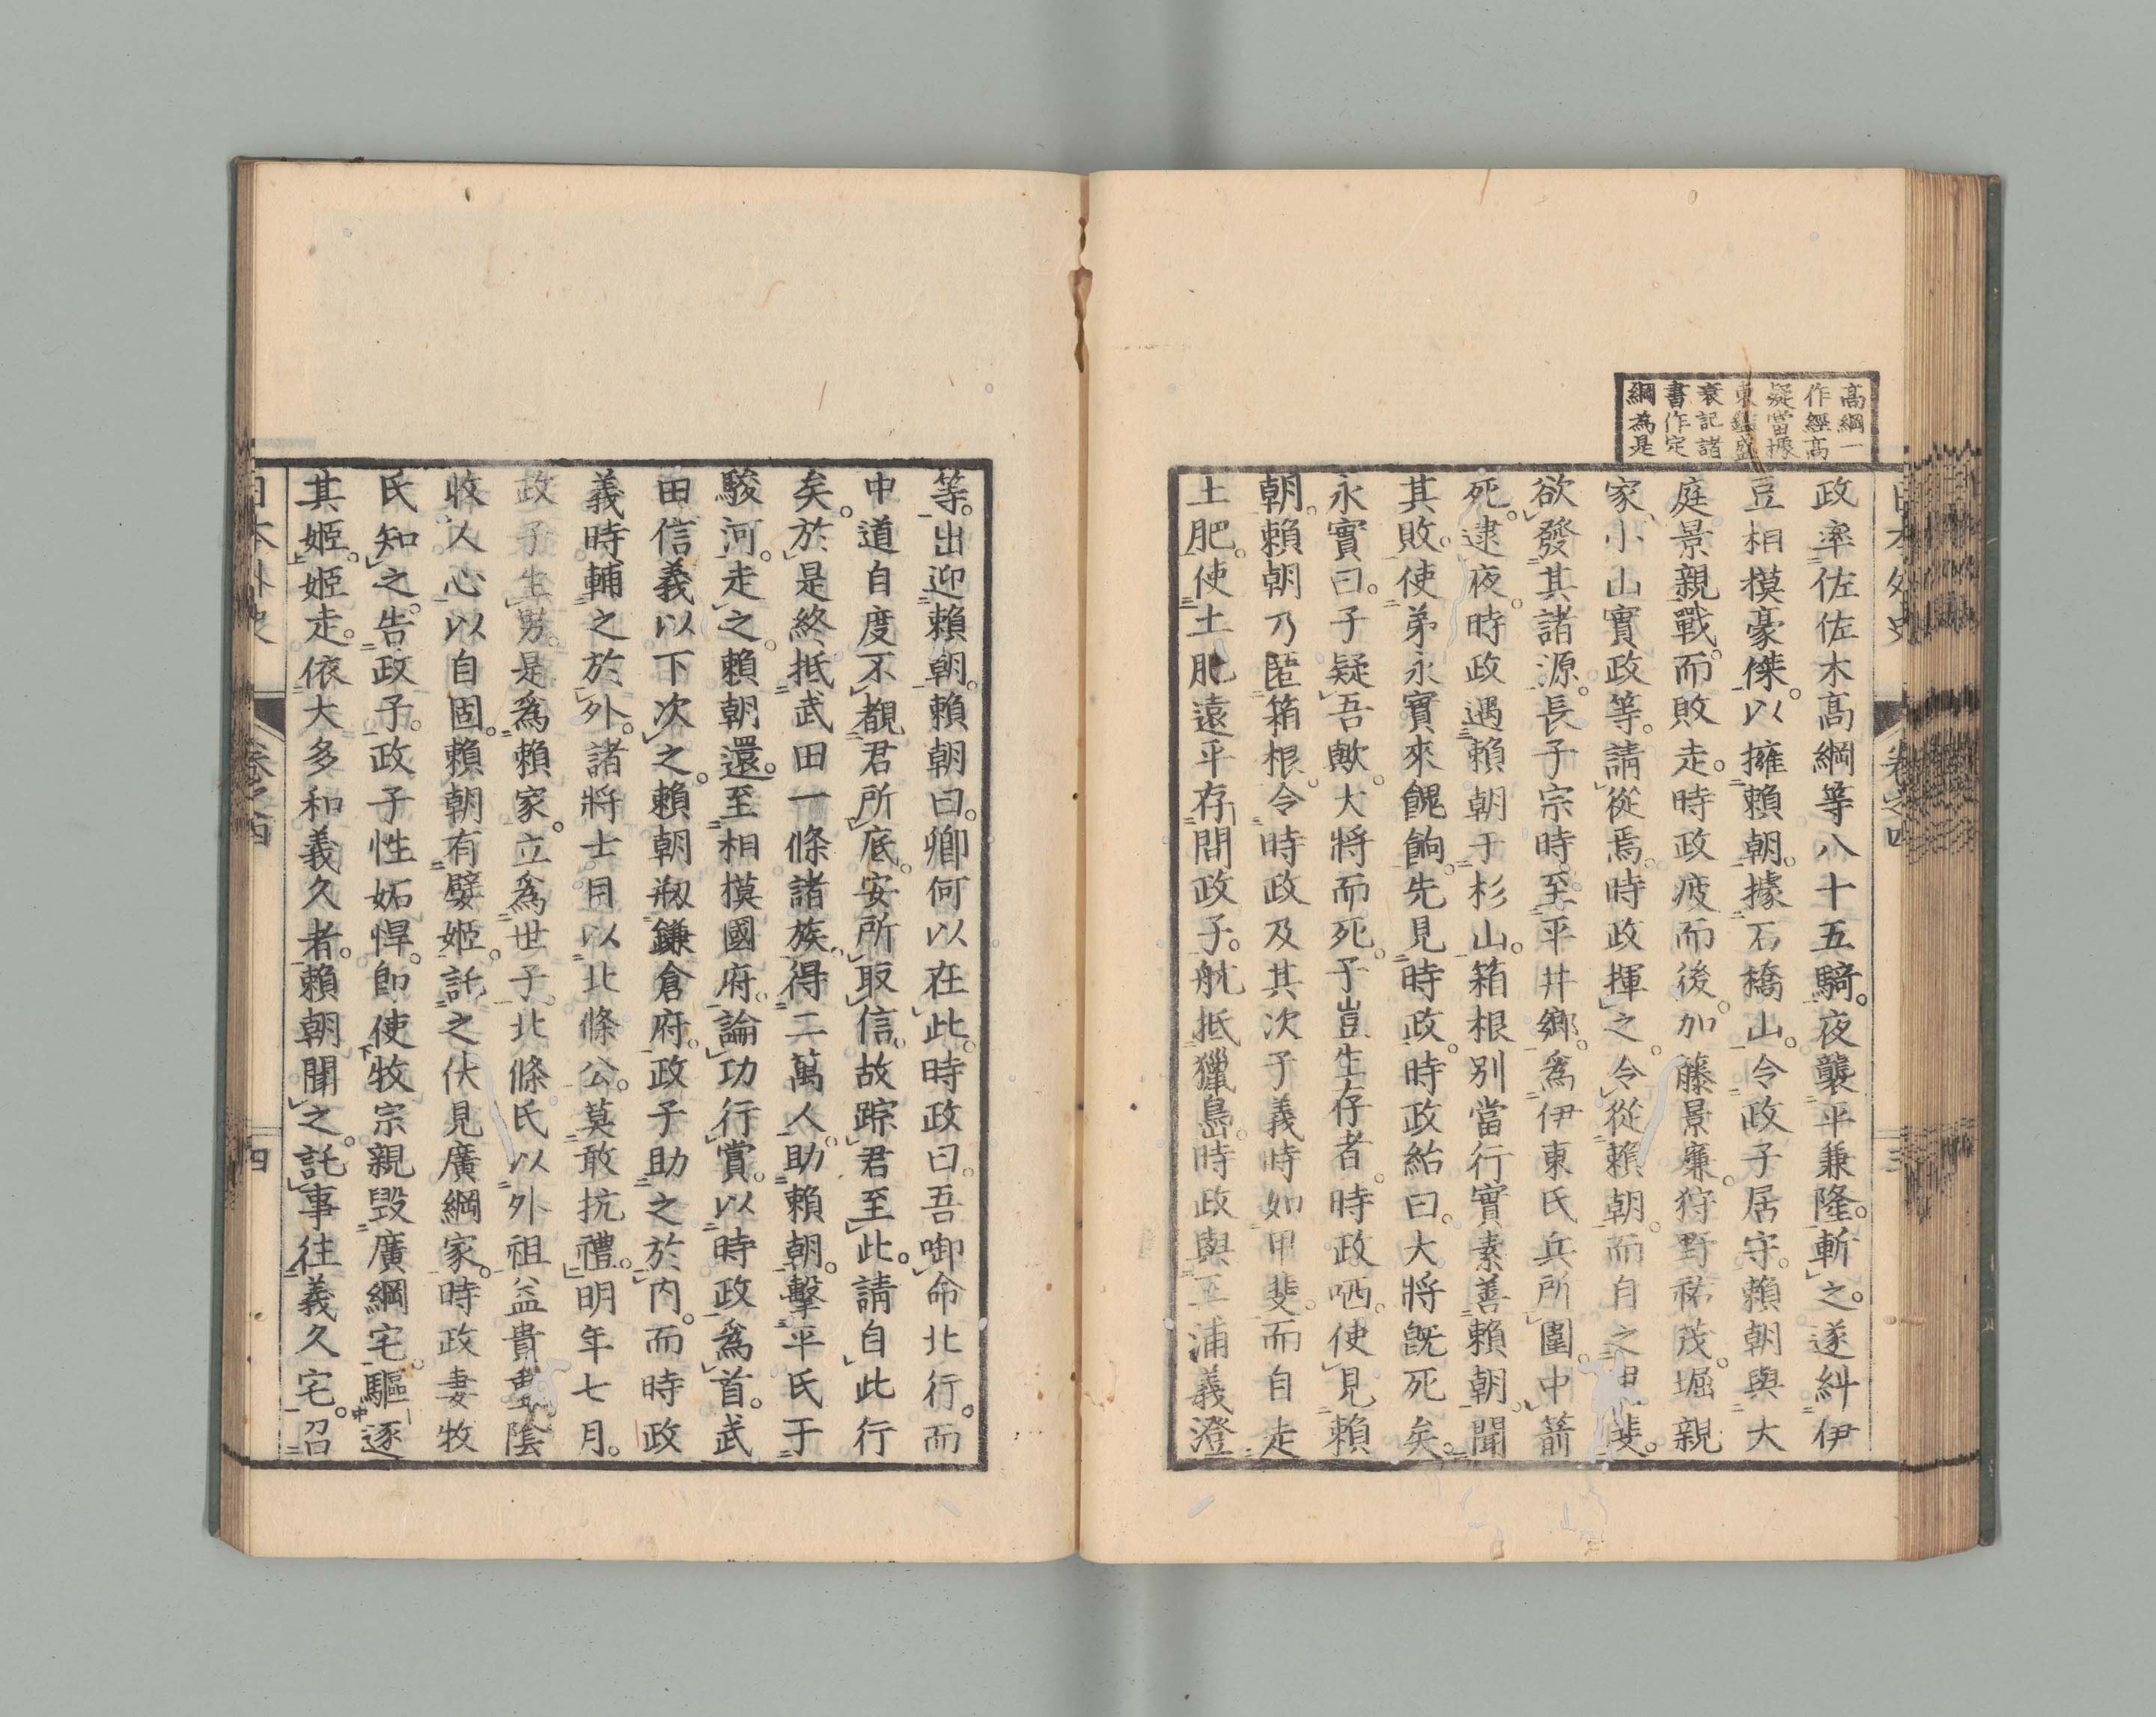 高綱一
作經高
疑當據
東鑑盛
衰記諸
書作定
綱為是
政率佐佐木高綱等八十五騎。夜襲平兼隆。斬之。遂糾伊
豆相摸豪傑。以擁賴朝。據石橋山。令政子居守。賴朝與大
庭景親戰。而敗走。時政疲而後。加藤景廉。狩野祐茂。堀親
家。小山實政等。請從焉。時政揮之。令從賴朝。而自之甲斐。
欲發其諸源。長子宗時。至平井鄉。為伊東氏兵所圍。中箭
死。逮夜。時政遇賴朝于杉山。箱根別當行實素善賴朝。聞
其敗。使弟永實來餽餉。先見時政。時政紿曰。大將既死矣。
永實曰。子疑吾歟。大將而死。子豈生存者。時政哂。使見賴
朝。賴朝乃匿箱根。令時政及其次子義時如甲斐。而自走
土肥。使土肥遠平存問政子。航抵獵島。時政與三浦義澄
等。出迎賴朝。賴朝曰。卿何以在此。時政曰。吾啣命北行。而
中道自度。不覩君所底。安所取信。故踪君至此。請自此行
矣。於是終抵武田一條諸族。得二萬人。助賴朝。擊平氏于
駿河。走之。賴朝還。至相摸國府。論功行賞。以時政為首。武
田信義以下次之。賴朝剏鎌倉府。政子助之於內。而時政
義時輔之於外。諸將士目以北條公。莫敢抗禮。明年七月。
政子生男。是爲賴家。立爲世子。北條氏以外祖益貴。陰
收人心以自固。賴朝有嬖姬。託之伏見廣綱家。時政妻牧
氏知之。告政子。政子性妬悍。卽使牧宗親毀廣綱宅。驅逐
其姬。姬走。依大多和義久者。賴朝聞之。託事往義久宅。召
日本外史 卷之四 四